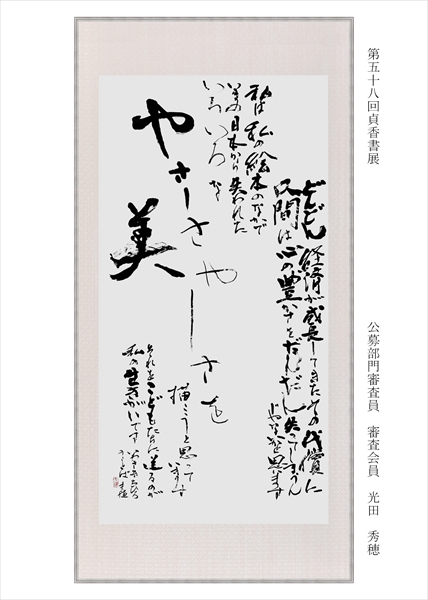 第五十八回貞香書展
公募部門審査員　審査会員　光田　秀穂
どんどん経済が成長してきたその代償に
人間は心の豊かさをだんだん失ってしまうん
じゃないかと思います
私は私の絵本のなかで
いまの日本から失われた
いろいろな
やさしさや
美しさを
描こうと思って
います
それをこどもたちに送るのが
私の生きがいです いわさきちひろ
のことば 秀穂